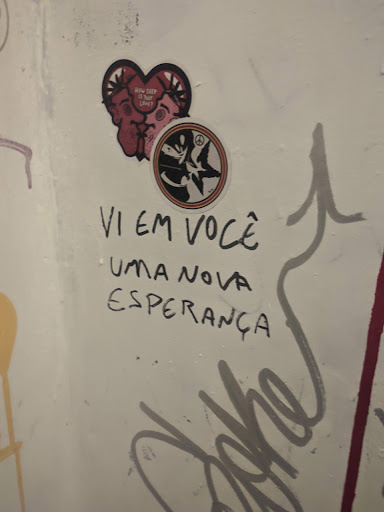 HOW DEEP
IS YOUR
LOVE?
VI EM VOCÊ
UMA NOVA
ESPERANÇA